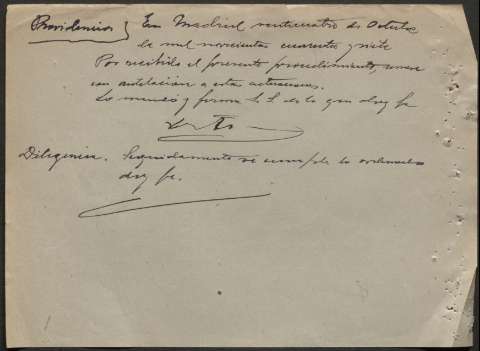 Providencia } En Madrid veinticuatro de Octubre
de mil novecientos cuarenta y siete
Por recibido el presente procedimiento, unase
con antelación a estas actuaciones.
Lo mandó y firma S.S. de lo que doy fe
Diligencia. Seguidamente se cumple lo ordenado
doy fe.